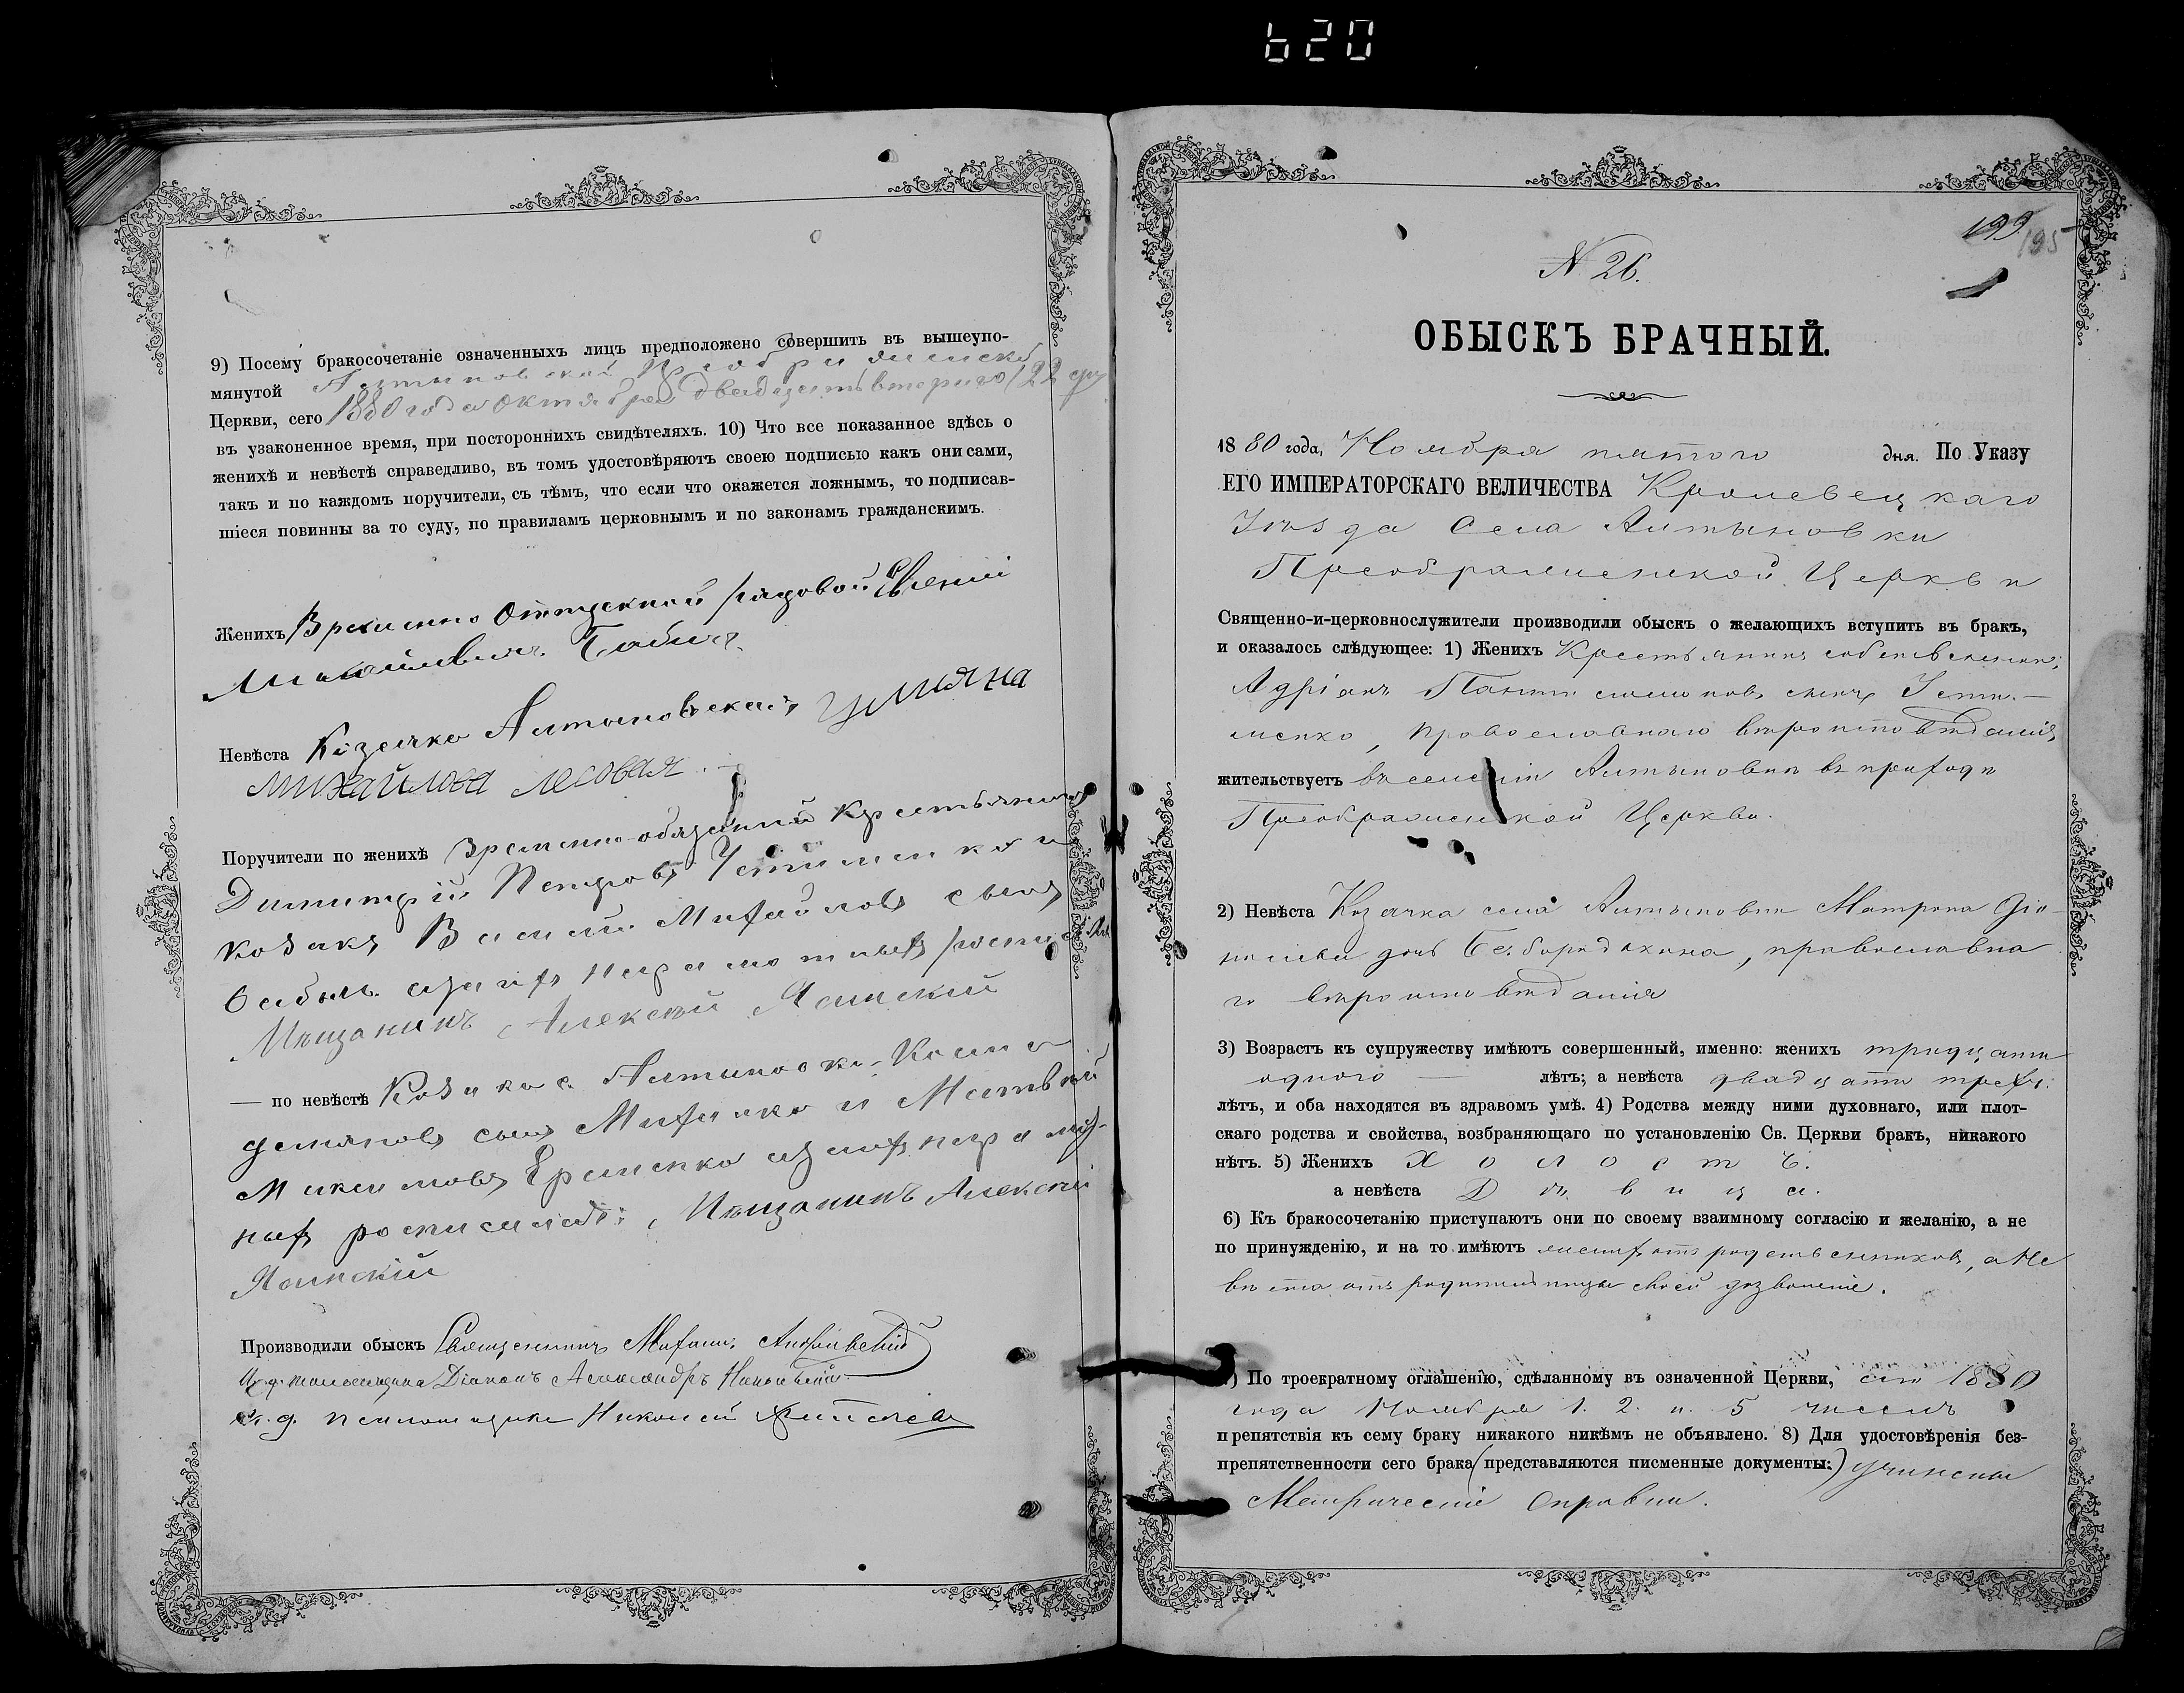 620
9) Посему бракосочетаніе означенныхъ лицъ предположено совершить въ вышеупо-
мянутой Алтыновской Преображенской
Церкви, сего 1880 года Октября двадцать втораго (22 дня)
въ узаконенное время, при постороннихъ свидѣтеляхъ. 10) Что все показанное здѣсь о
женихѣ и невѣстѣ справедливо, въ томъ удостовѣряютъ своею подписью какъ они сами,
такъ и по каждомъ поручители, съ тѣмъ, что если что окажется ложнымъ, то подписав-
шіеся повинны за то суду, по правиламъ церковнымъ и по законамъ гражданскимъ.
Женихъ Временно Отпускной рядовой Евгеній
Михайловичъ Бабичъ.
Невѣста Козачка Алтыновская
михайлова лесовая
Поручители по женихѣ временно-обязанный крестьянинъ
Димитрій Петровъ Устименко и
козакъ Василій Михайловъ сынъ
неграмотныхъ
Мѣщанинъ Алексѣй Ямпскій
— по невѣстѣ Козаки с. Алтыновки Косма
Демяновъ сынъ Михалко и Матвѣй
Максимовъ Ерменко а за ихъ неграмот-
ныхъ росписался: Мѣщанинъ Алексѣй
Ямпскій
Производили обыскъ Священникъ Михаилъ
И. д. псаломщика Діаконъ Александръ
И. д. псаломщика Николай
N 26.
199
195
ОБЫСКЪ БРАЧНЫЙ.
1880 года, Ноября пятого дня. По Указу
ЕГО ИМПЕРАТОРСКАГО ВЕЛИЧЕСТВА Кролевецкаго
Уѣзда Села Алтыновки
Преображенской Церкви
Священно-и-церковнослужители производили обыскъ о желающихъ вступить въ бракъ,
и оказалось слѣдующее: 1) Женихъ Крестьянинъ собственникъ
Адріанъ Пантелимоновъ сынъ Усти-
менко, православнаго вѣроисповѣданія
жительствуетъ въ селеніи Алтыновки въ приходѣ
Преображенской Церкви.
2) Невѣста Козачка села Алтыновки Матрона Діо-
нисіева дочь Безбородкина, православна
го вѣроисповѣданія
3) Возрастъ къ супружеству имѣютъ совершенный, именно: женихъ тридцати
одного — лѣтъ; а невѣста двадцати трехъ
лѣтъ, и оба находятся въ здравомъ умѣ. 4) Родства между ними духовнаго, или плот-
скаго родства и свойства, возбраняющаго по установленію Св. Церкви бракъ, никакого
нѣтъ. 5) Женихъ Холостъ.
а невѣста Дѣвица.
6) Къ бракосочетанію приступаютъ они по своему взаимному согласію и желанію, а не
по принужденію, и на то имѣютъ женихъ отъ родственниковъ, а Не
вѣста отъ родительницы своей дозволеніе.
7) По троекратному оглашенію, сдѣланному въ означенной Церкви, сего 1880
года Ноября 1. 2. и. 5 чиселъ
препятствія къ сему браку никакого никѣмъ не объявлено. 8) Для удостовѣренія без-
препятственности сего брака (представляются писменные документы:) учинены
Метрическіе справки.